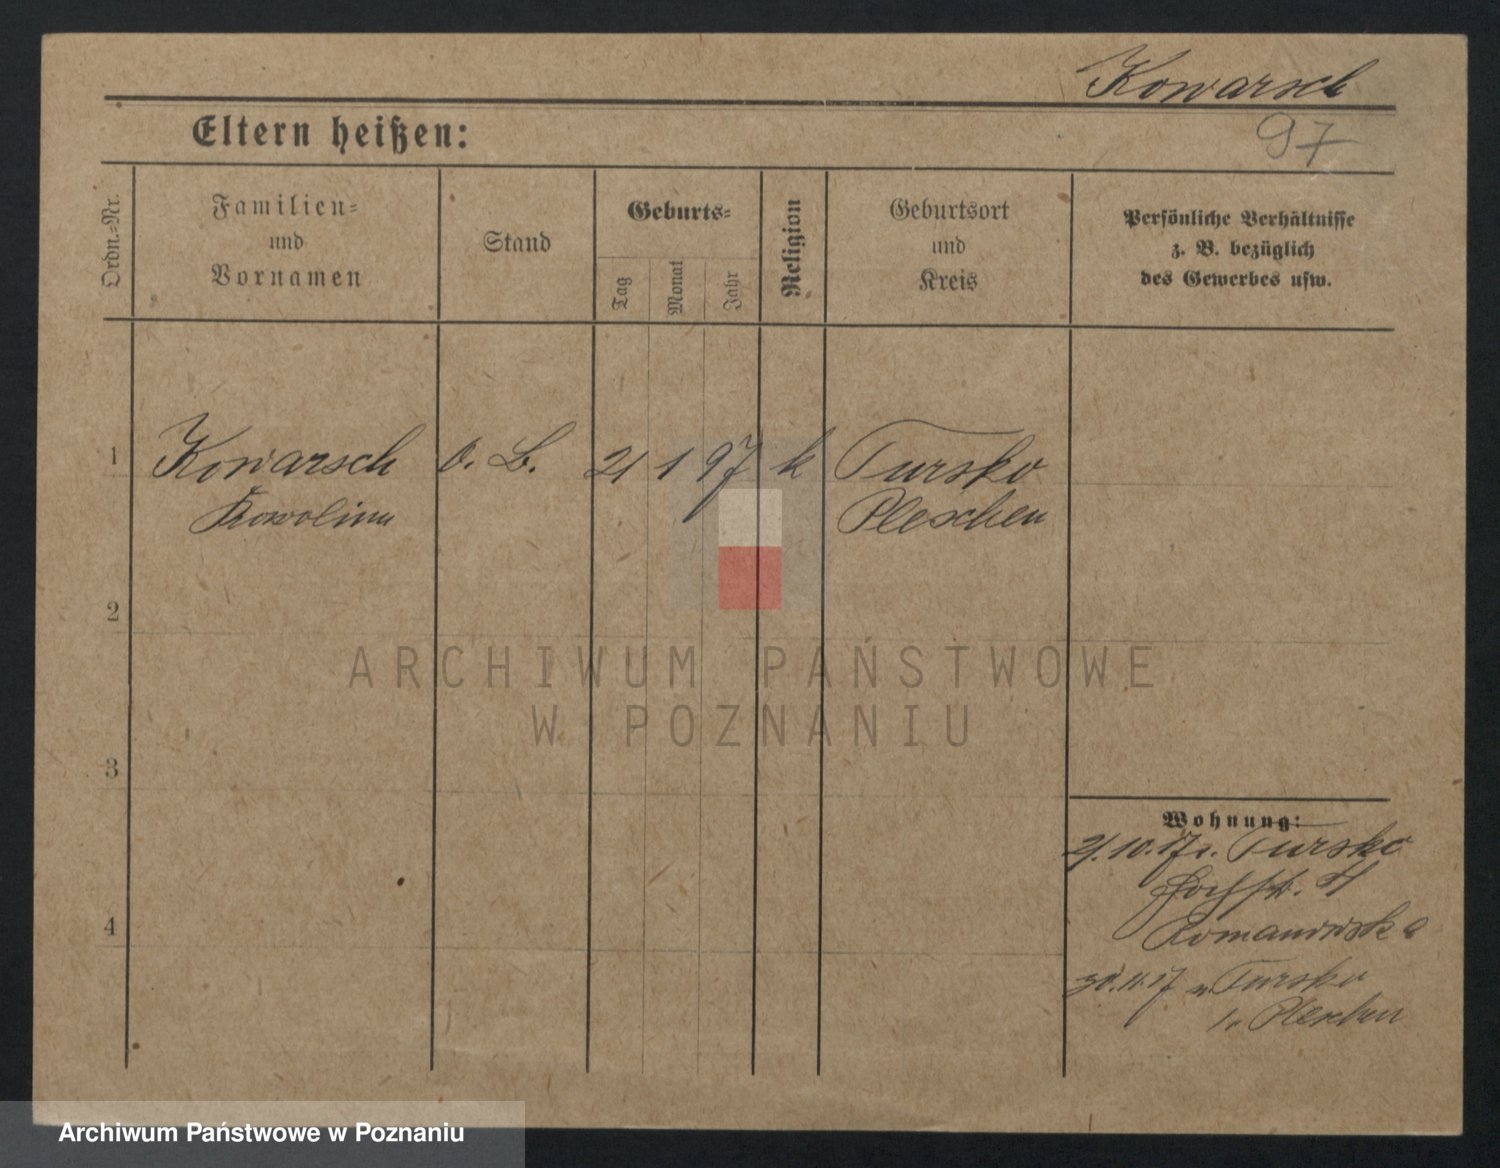 Kowarsch
Eltern heißen:
97
Ordn.-Nr.
Familien-
und
Vornamen
Stand
Geburts-
Tag
Monat
Jahr
Religion
Geburtsort
und
Kreis
Persönliche Verhältnisse
z. B. bezüglich
des Gewerbes usw.
1 Kowarsch o. B. 21 1 97 k Tursko
Pleschen
2
3
4
Wohnung:
21.10.17 v. Tursko
Romanowska
30.11.17 n. Tursko
Pleschen
ARCHIWUM PAŃSTWOWE
W POZNANIU
Archiwum Państwowe w Poznaniu